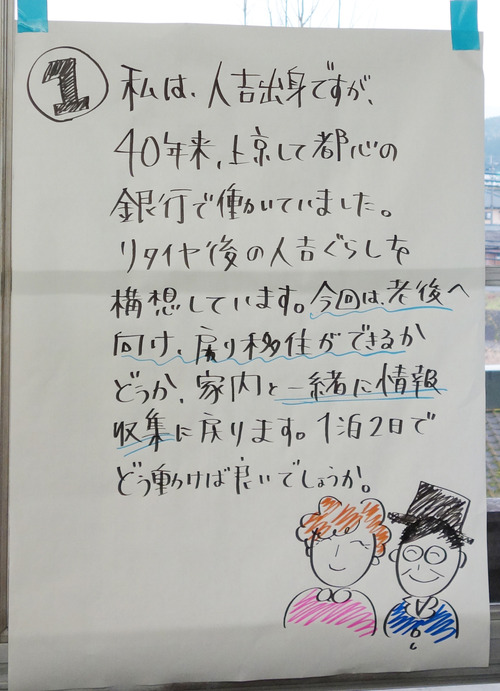 1 私は、人吉出身ですが、
40年来、上京して都心の
銀行で働いていました。
リタイヤ後の人吉ぐらしを
構想しています。今回は、老後へ
向け、戻り移住ができるか
どうか、家内と一緒に情報
収集に戻ります。1泊2日で
どう動けば良いでしょうか。